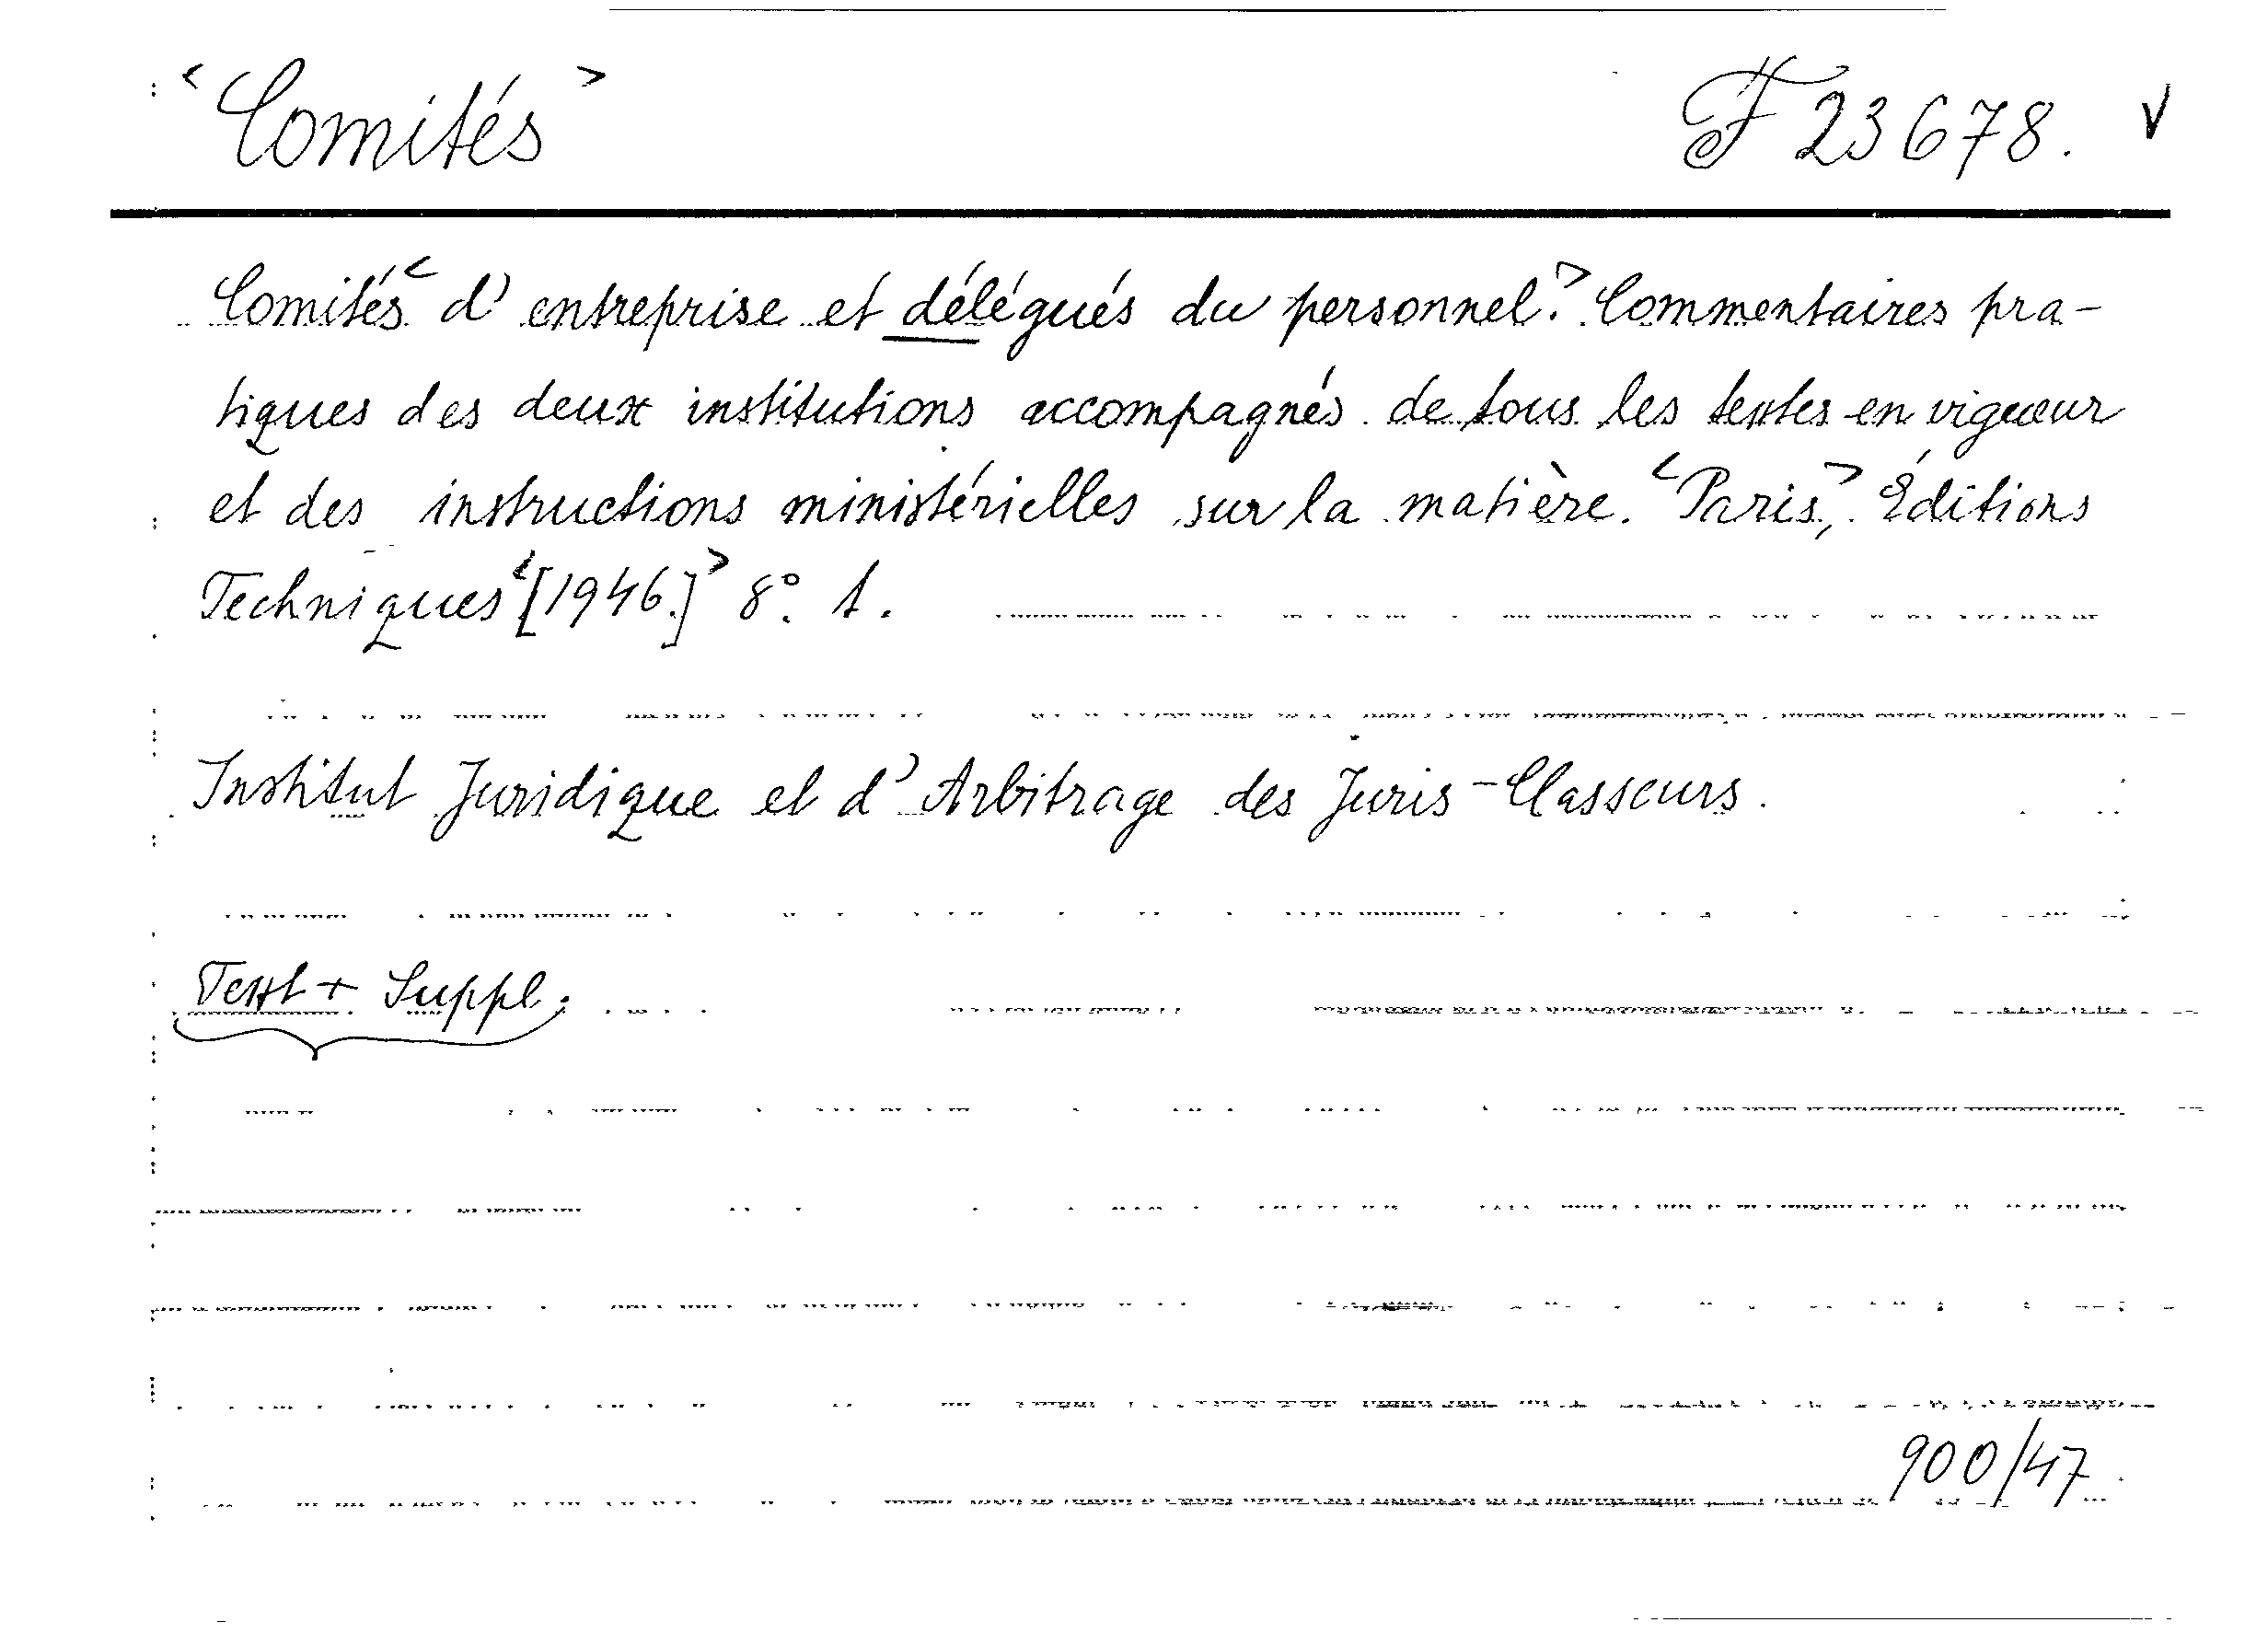 <Comités> F 23678. v
Comités < d'entreprise et délégués du personnel.> Commentaires pra-
tiques des deux institutions accompagnés de tous les textes en vigueur
et des instructions ministérielles sur la matière. <Paris,> Éditions
Techniques <[1946.]> 8°. 1.
Institut Juridique et d'Arbitrage des Juris-Classeurs.
Text + Suppl.
900/47.